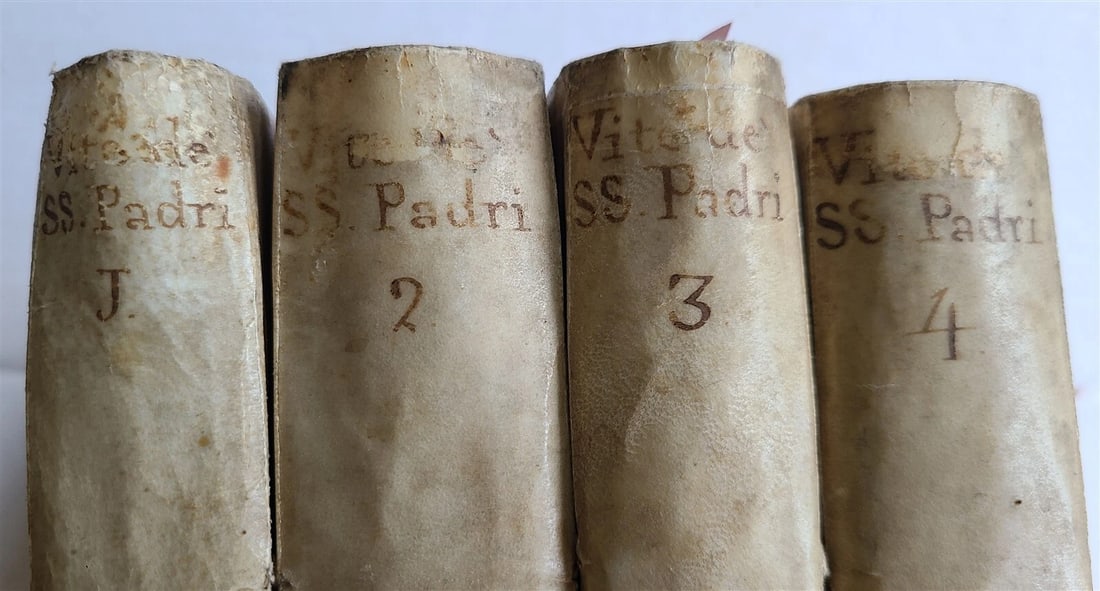 Vite de'
SS. Padri
J.
Vite de'
SS. Padri
2
Vite de'
SS. Padri
3
Vite de'
SS. Padri
4